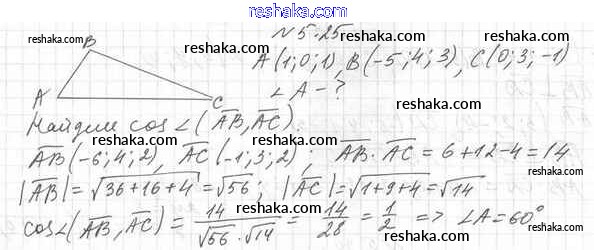 reshaka.com
№ 5.25
reshaka.com
B
reshaka.com
A (1; 0; 1), B(-5; 4; 3), C(0; 3; -1)
A
C
∠A - ?
reshaka.com
Найдем cos∠(AB, AC).
reshaka.com
AB(-6; 4; 2), AC(-1; 3; 2); AB · AC = 6+12-4=14
|AB| = √36+16+4 = √56; |AC| = √1+9+4 = √14
reshaka.com
cos∠(AB, AC) = 14/√56·√14 = 14/28 = 1/2 => ∠A=60°
reshaka.com